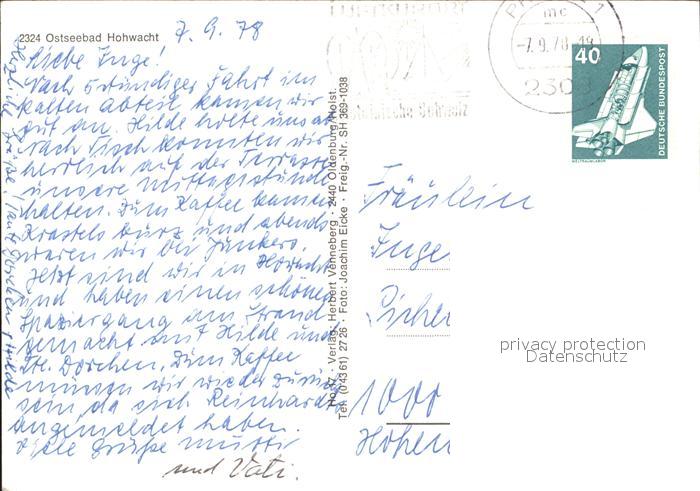 2324 Ostseebad Hohwacht
7. 9. 78
Liebe Inge!
Nach 5stündiger Fahrt im
kalten Abteil kamen wir
gut an. Hilde holte uns ab
Nach Tisch konnten wir
herrlich auf der Terrasse
unsere Mittagsstunde
halten. Zum Kaffee kamen
Krastels kurz und abends
waren wir bei Junkers.
Jetzt sind wir in Howacht
und haben einen schönen
Spaziergang am Strand
gemacht mit Hilde und
Tte. Dorchen. Zum Kaffee
müssen wir wieder zurück
sein da sich Reinhards
angemeldet haben.
Viele Grüße Mutti
und Vati.
Herzliche Grüße! Tante Dorchen, Hilde
Ho 17 · Verlag: Herbert Venneberg · 2440 Oldenburg/Holst.
Tel. (0 43 61) 27 26 · Foto: Joachim Eicke · Freig.-Nr. SH 369-1038
mc
-7.9.78-19
230
40
DEUTSCHE BUNDESPOST
WELTRAUMLABOR
Fräulein
Inge
1000
privacy protection
Datenschutz